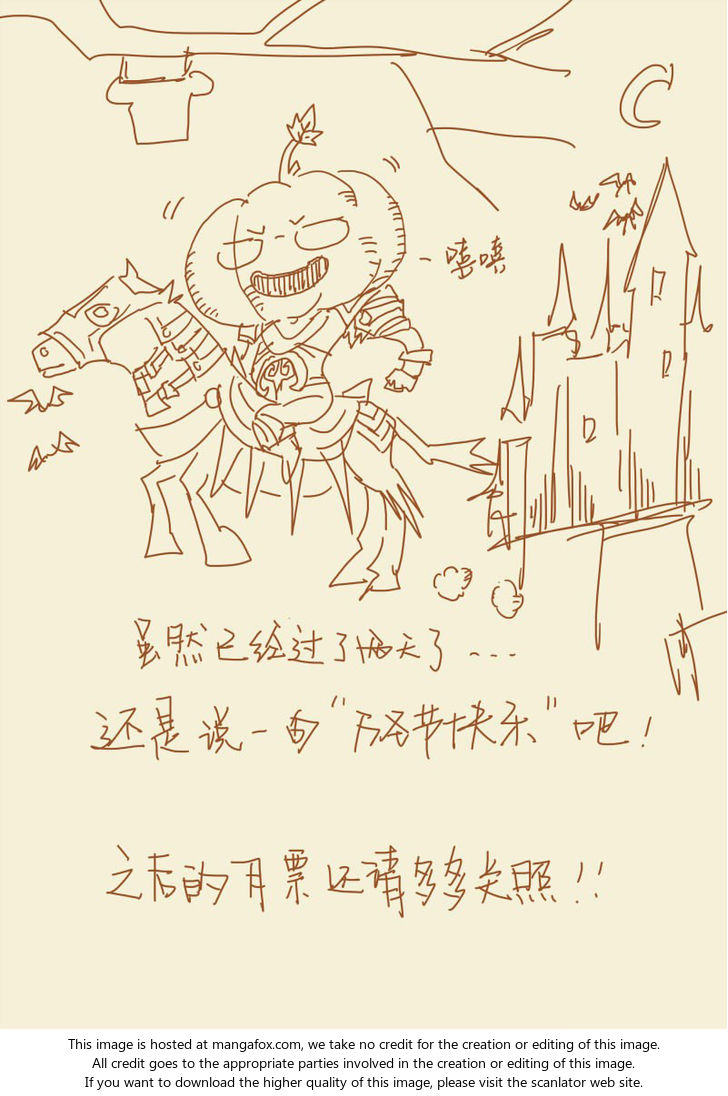 嘻嘻
虽然已经过了两天了...
还是说一句"万圣节快乐"吧!
之后的月票还请多多关照!!
This image is hosted at mangafox.com, we take no credit for the creation or editing of this image.
All credit goes to the appropriate parties involved in the creation or editing of this image.
If you want to download the higher quality of this image, please visit the scanlator web site.